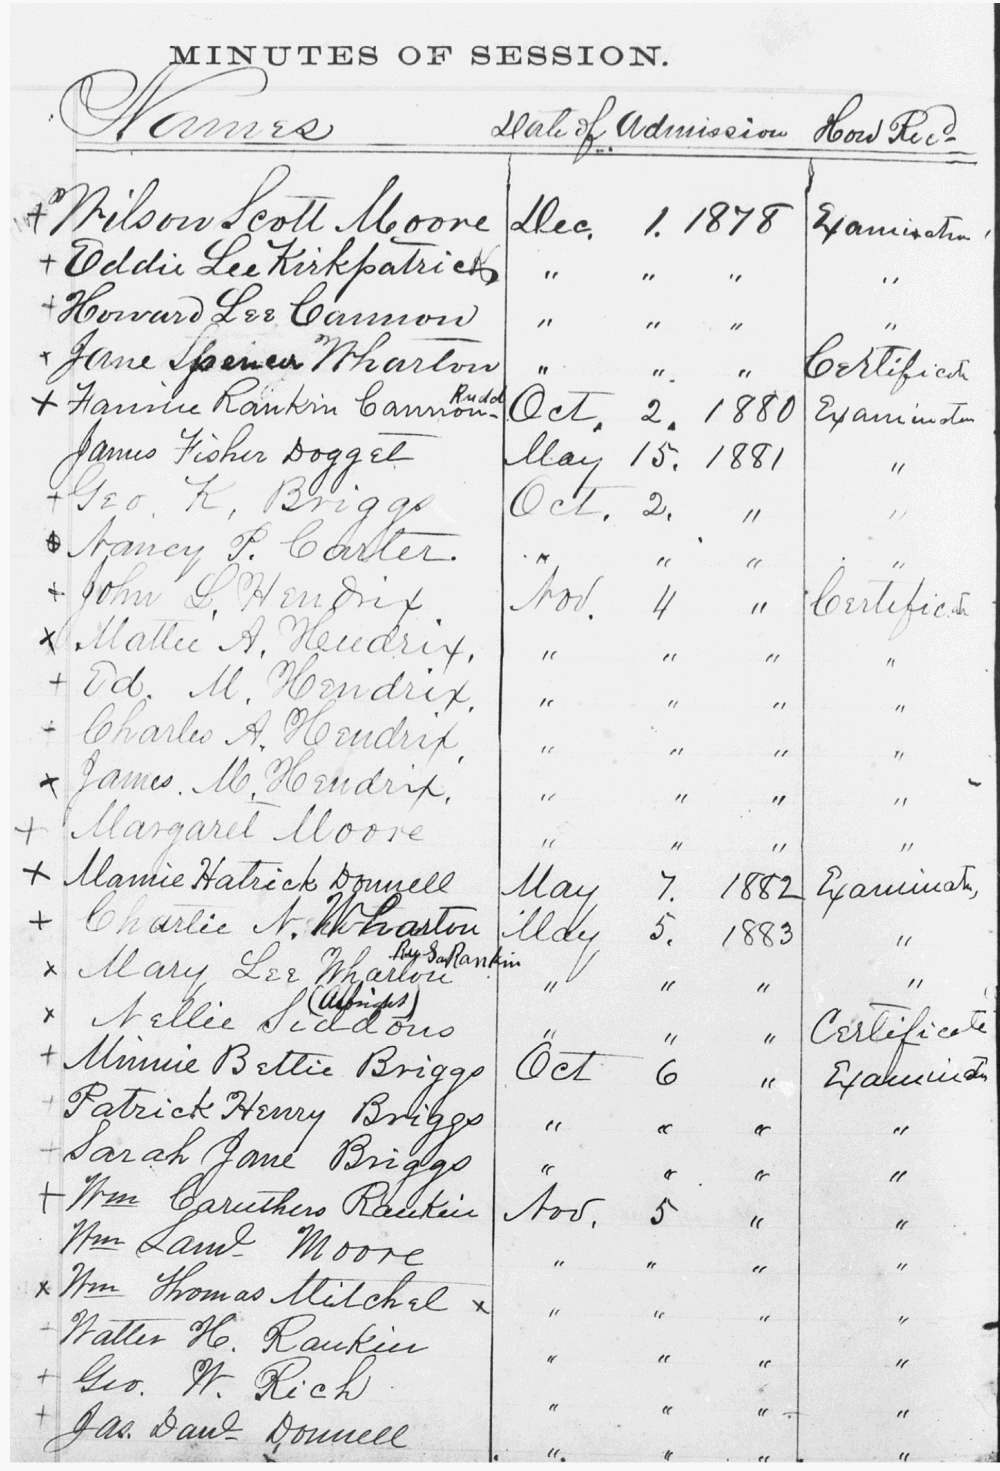 MINUTES OF SESSION.
Names Date of Admission How Rec'd
+ Wilson Scott Moore Dec. 1. 1878 Examination
+ Eddie Lee Kirkpatrick " " " "
+ Howard Lee Cannon " " " "
x Jane Spencer Wharton " " " Certificate
Rudd
x Fannie Rankin Cannon- Oct. 2. 1880 Examination
James Fisher Dogget May 15. 1881 "
+ Geo. K. Briggs Oct. 2. " "
Nancy P. Carter. " " " "
+ John L. Hendrix Nov. 4 " Certificate
x Mattie A. Hendrix. " " " "
+ Ed. M. Hendrix. " " " "
- Charles A. Hendrix. " " " "
x James. M. Hendrix. " " " "
+ Margaret Moore " " " "
+ Mamie Hatrick Donnell May 7. 1882 Examination
+ Charlie N. Wharton May 5. 1883 "
Rankin
x Mary Lee Wharton " " " "
(Albright)
x Nellie Siddons " " " Certificate
+ Minnie Bettie Briggs Oct 6 " Examination
+ Patrick Henry Briggs " " " "
- Sarah Jane Briggs " " " "
+ Wm Caruthers Rankin Nov. 5 " "
Wm Saml. Moore " " " "
x Wm Thomas Mitchel x " " " "
- Walter H. Rankin " " " "
+ Geo. W. Rich " " " "
+ Jas. Danl. Donnell " " " "